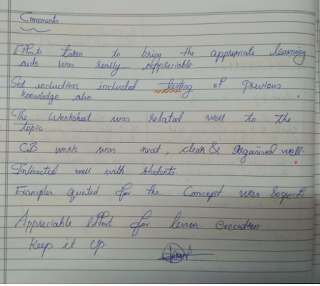 Comments
Efforts taken to bring the appropriate learning
aids was really appreciable
Set induction included testing of Previous
knowledge also
The Worksheet was related well to the
topic.
CB work was neat, clean & Organised well.
Interacted well with students.
Examples quoted for the Concept was
Appreciable effort for lesson execution
Keep it up